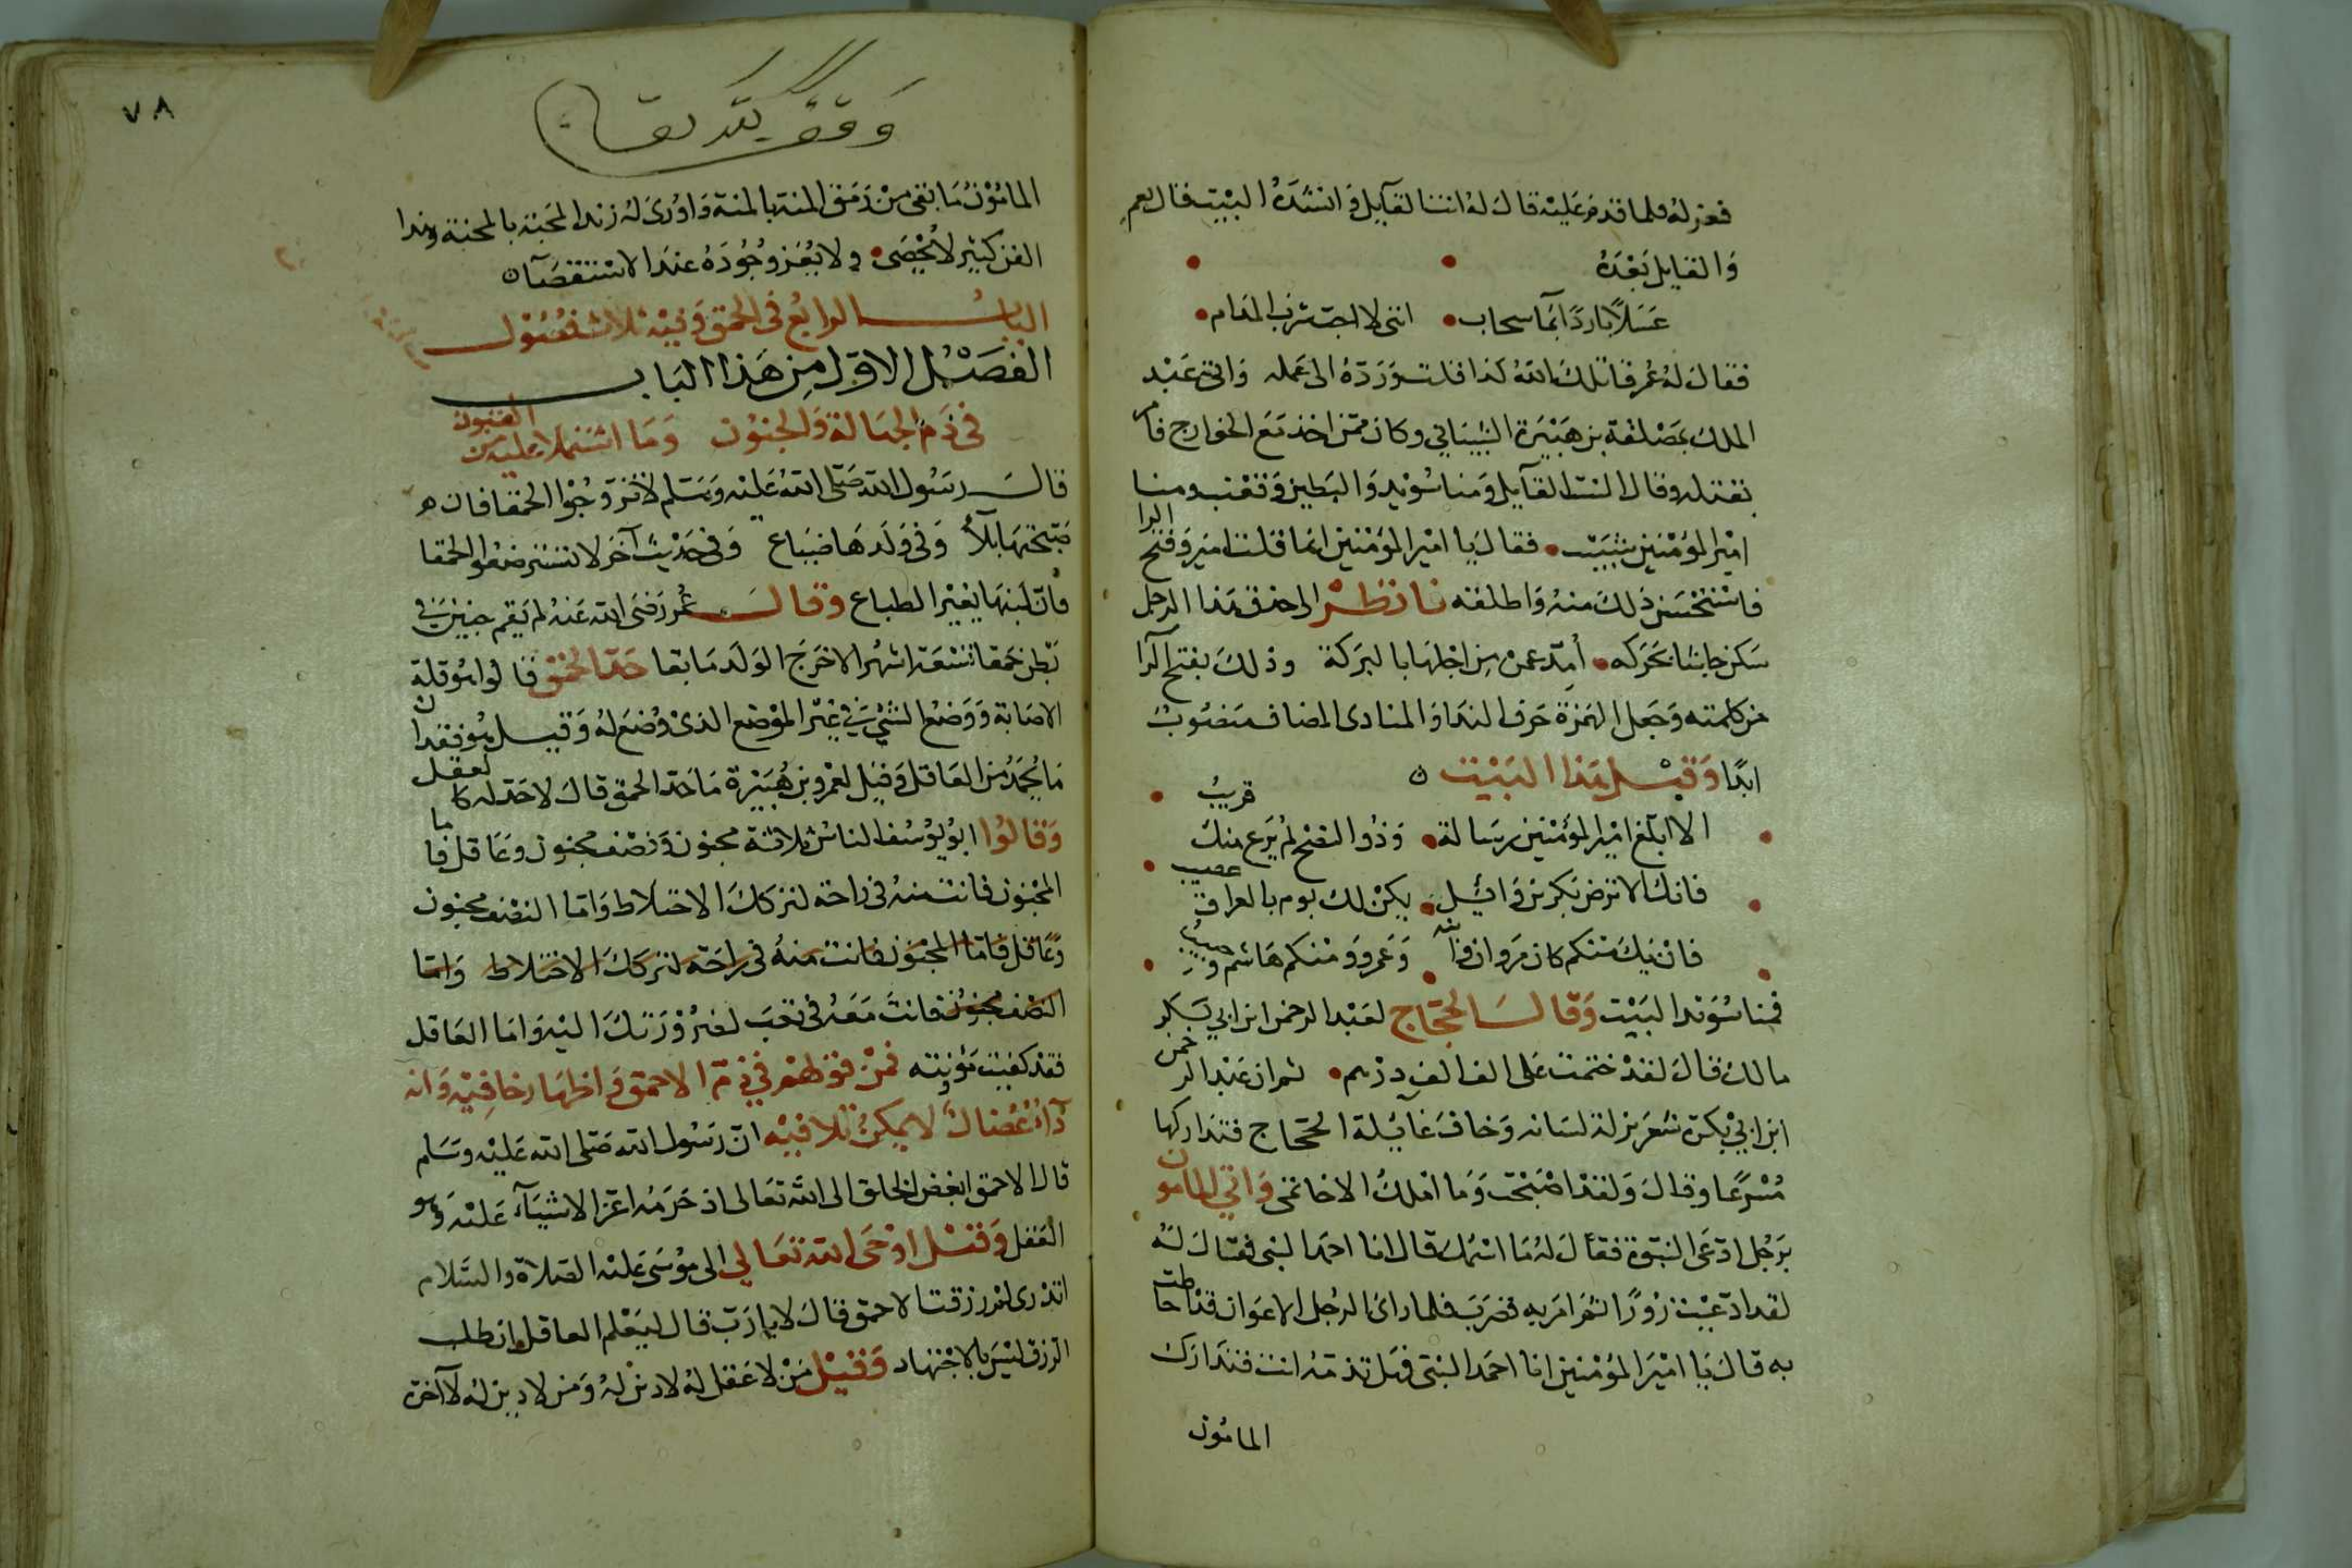 فعزله فلما قدم عليه قال له انت القايل وانشده البيت فقال نعم
والقايل بعده
عسلا باردا بماء سحاب انني لا احب شرب المدام
فقال له عمر قاتلك الله كذا قلت ورده الى عمله واتى عبد
الملك بمصلقة بن هبيرة الشيباني وكان ممن اخذ مع الخوارج فامر
بقتله وقال الست القايل ومنا سويد والبطين وقعنب ومنا
امير المؤمنين شبيب فقال يا امير المؤمنين انما قلت امير وفتح الرا
فاستحسن ذلك منه واطلقه فانظر الى حذق هذا الرجل
سكن جاشا بحركه عمن من اجلها بالبركة وذلك بفتح الرا
من كلمته وجعل الهمزة حرف الندا والمنادى المضاف منصوب
ابدا وقبل هذا البيت
الا ابلغ امير المؤمنين رسالة وذو النصح لم يرع منك قريب
فانك الا ترض بكر بن وائل يكن لك يوم بالعراق عصيب
فان يك منكم كان مروان وابنه وعمرو ومنكم هاشم وحبيب
فمنا سويد البيت وقال الحجاج لعبد الرحمن ابن ابي بكر
مالك قال لقد ختمت على الف الف درهم ثم ان عبد الرحمن
ابن ابي بكرة شعر بزلة لسانه وخاف غايلة الحجاج فتداركها
مسرعا وقال ولقد اصبحت وما املك الا خاتمي واتي المامون
برجل ادعى النبوة فقال له ما اسمك قال انا احمد النبي فقال له
لقد ادعيت زورا ثم امر به فضرب فلما راى الرجل الاعوان قد احاطت
به قال يا امير المؤمنين انا احمد النبي فهل تذمه انت فتدارك
المامون
٧٨
وقف لله تعالى
المامون ما بقى من رمق المنة بالمنة واورى له زند المحبة بالمحنة وهذا
الفن كثير لا يحصى ولا يعز وجوده عند الاستقصا
الباب الرابع في الحمق وفيه ثلاث فصول
الفصل الاول من هذا الباب
في ذم الجهالة والجنون وما اشتملا عليه من الفنون
قال رسول الله صلى الله عليه وسلم لا تزوجوا الحمقا فان
صحبتها بلاء وفي ولدها ضياع وفي حديث آخر لا تسترضعوا الحمقا
فان لبنها يغير الطباع وقال عمر رضي الله عنه لم يقم جنين في
بطن حمقا تسعة اشهر الا خرج الولد مايقا حد الحمق قالوا هو قلة
الاصابة ووضع الشي في غير الموضع الذي وضع له وقيل هو فقدان
ما يحمد من العاقل وقيل لعمرو بن هبيرة ما حد الحمق قال لا حد له كالعقل
وقالوا ابو يوسف الناس ثلاثة مجنون ونصف مجنون وعاقل فاما
المجنون فانت منه في راحة لتركك الاختلاط واما النصف مجنون
وعاقل فاما المجنون فانت منه في راحة لتركك الاختلاط واما
النصف مجنون فانت معه في تعب لضرورتك اليه واما العاقل
فقد كفيت مؤنته فمن قولهم في ذم الاحمق واظهار خافيه وانه
داء عضال لا يمكن تلافيه ان رسول الله صلى الله عليه وسلم
قال الاحمق ابغض الخلق الى الله تعالى اذ حرمه اعز الاشياء عليه وهو
العقل وقيل اوحى الله تعالى الى موسى عليه الصلاة والسلام
اتدري لم رزقت الاحمق قال لا يا رب قال ليعلم العاقل ان طلب
الرزق ليس بالاجتهاد وقيل من لا عقل له لا دين له ومن لا دين له لا آخرة